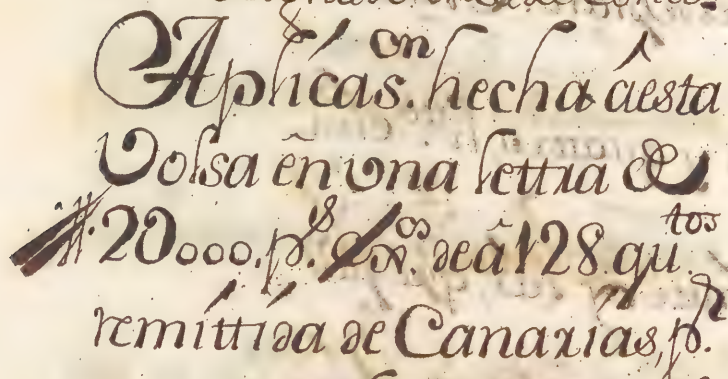 Aplicas.on hecha âesta
Volsa en vna lettra de
20000.p.s exos. de â 128 qu.tos
remíttída de Canarías, p.r